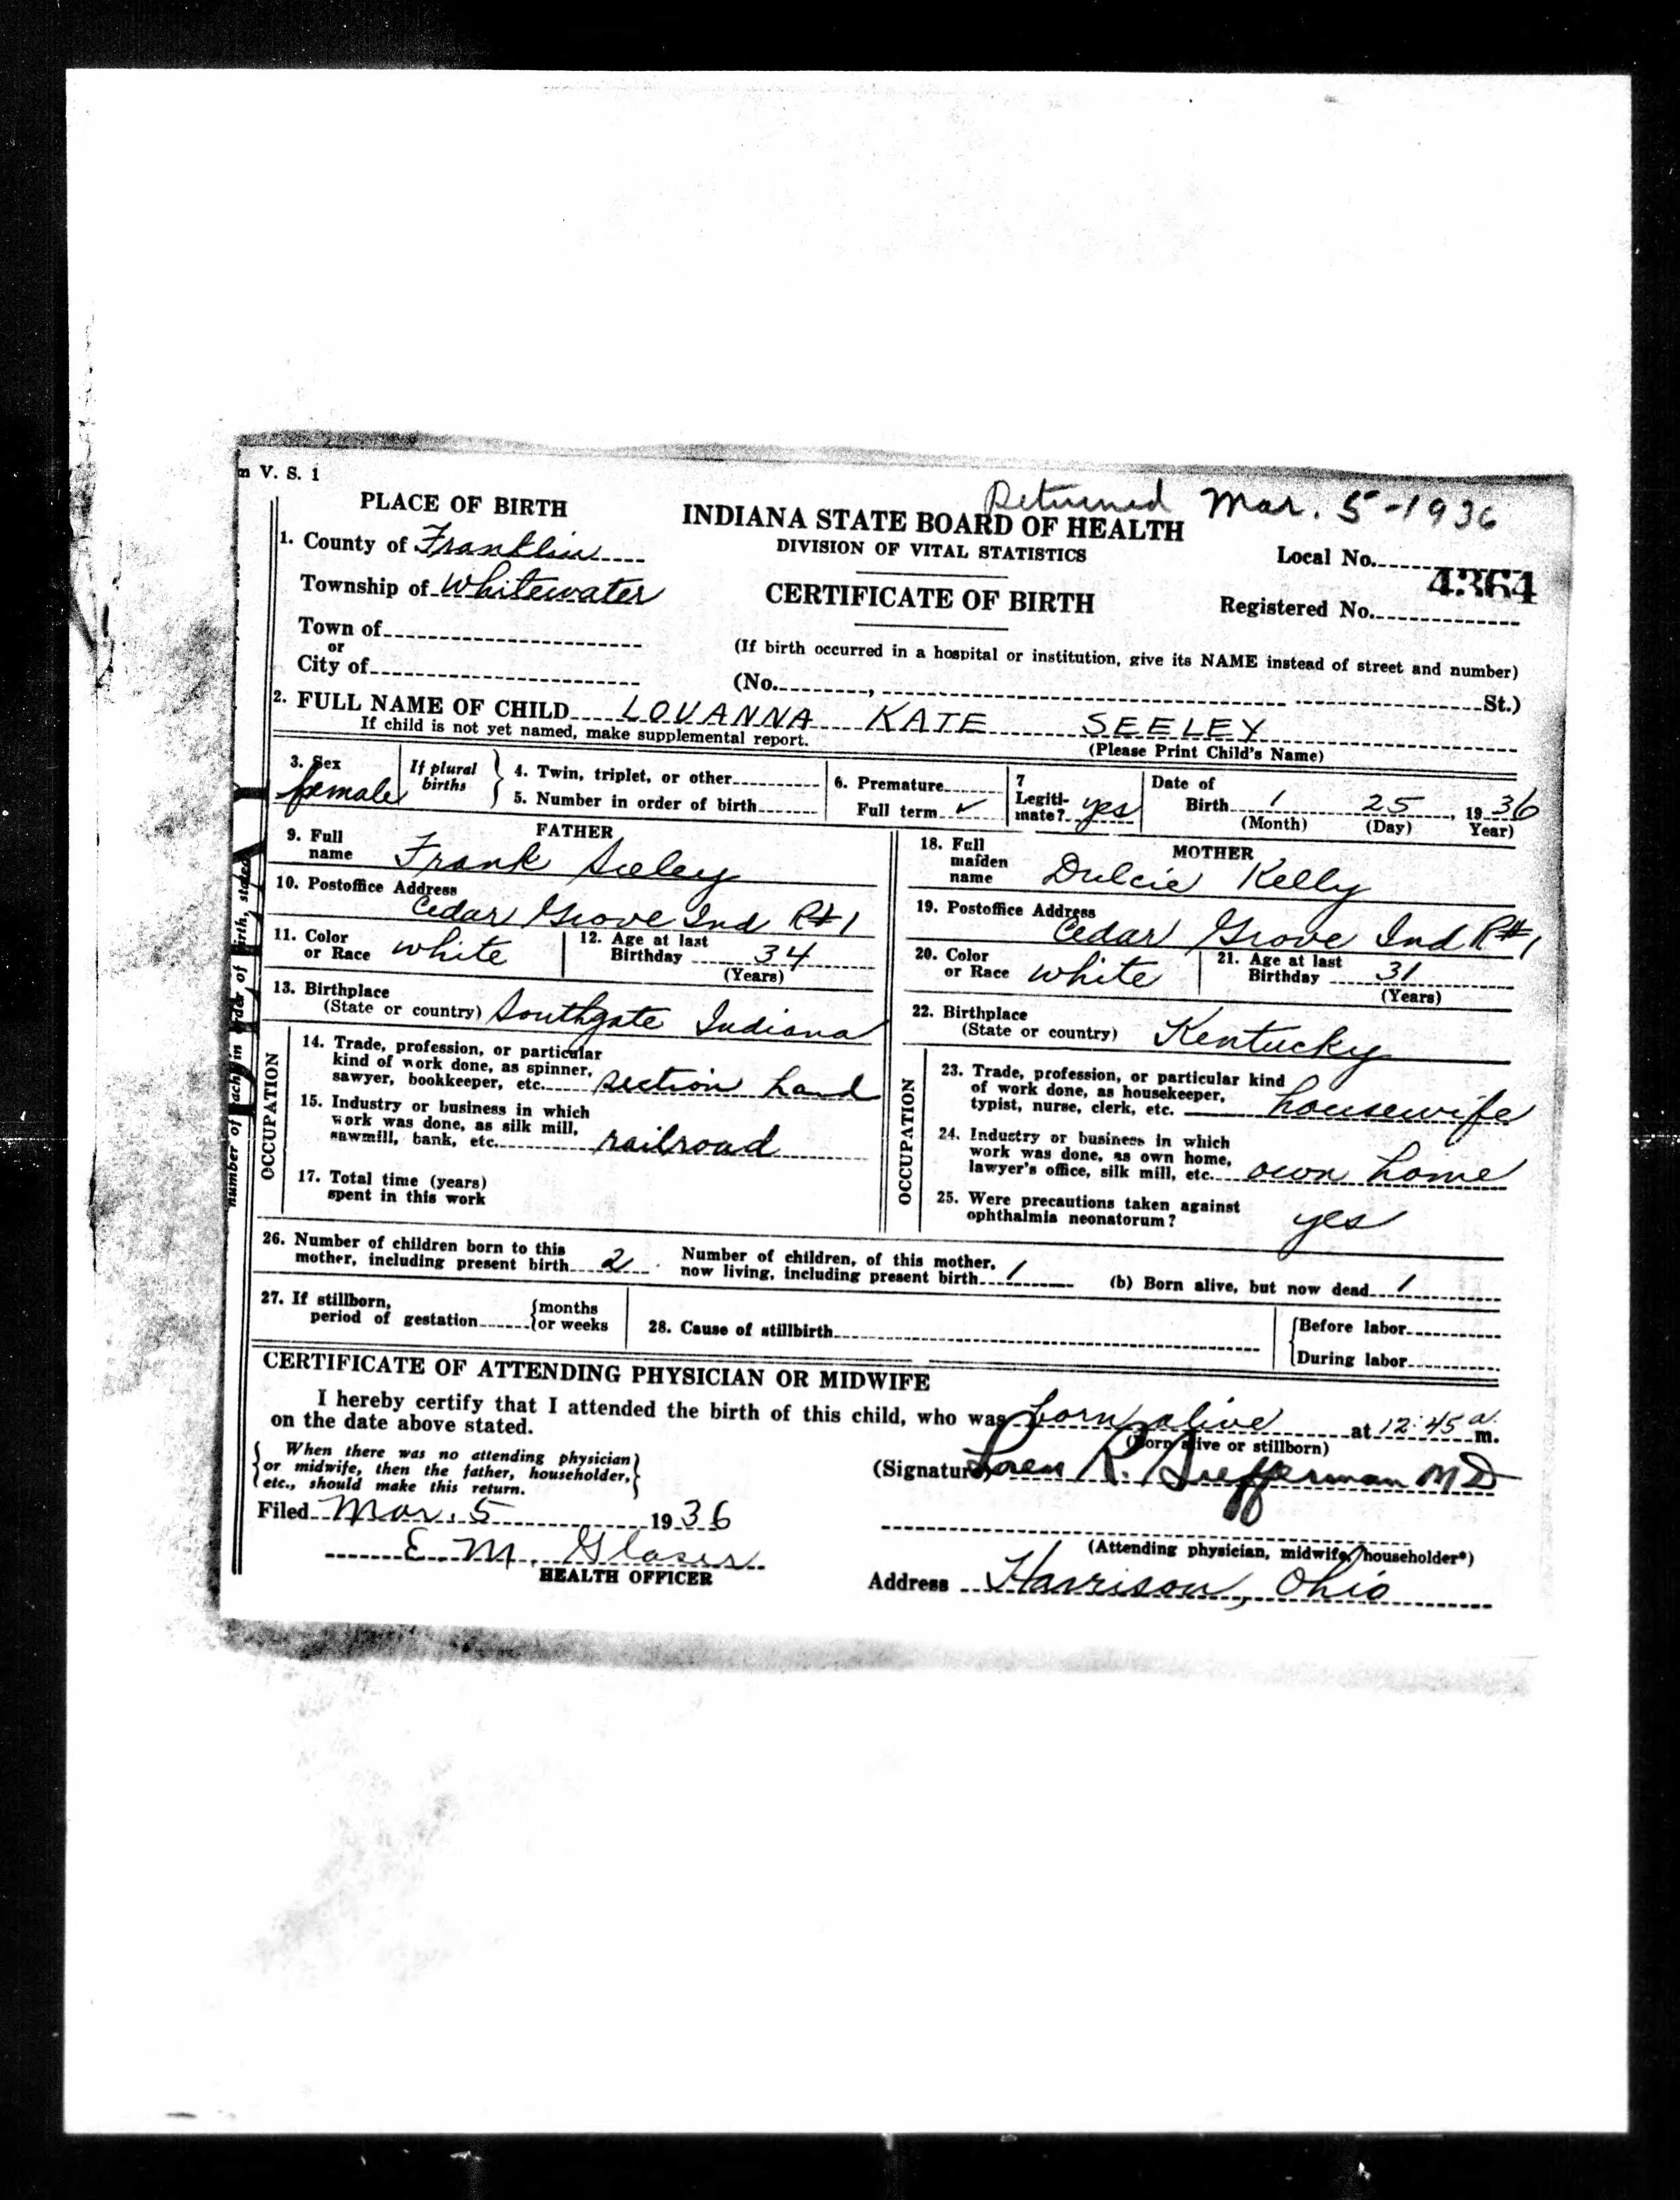 m V. S. 1
Returned Mar. 5-1936
PLACE OF BIRTH
INDIANA STATE BOARD OF HEALTH
DIVISION OF VITAL STATISTICS
1. County of Franklin
Local No.
4364
Township of Whitewater
CERTIFICATE OF BIRTH
Registered No.
Town of
or
City of
(If birth occurred in a hospital or institution, give its NAME instead of street and number)
(No. , St.)
2. FULL NAME OF CHILD LOVANNA KATE SEELEY
If child is not yet named, make supplemental report.
(Please Print Child's Name)
3. Sex
female
If plural births
4. Twin, triplet, or other
5. Number in order of birth
6. Premature
Full term ✓
7
Legiti-
mate? yes
Date of
Birth 1 25, 1936
(Month) (Day) Year)
FATHER
9. Full
name Frank Seeley
10. Postoffice Address
Cedar Grove Ind R#1
11. Color
or Race white
12. Age at last
Birthday 34
(Years)
13. Birthplace
(State or country) Southgate Indiana
OCCUPATION
14. Trade, profession, or particular
kind of work done, as spinner,
sawyer, bookkeeper, etc. section hand
15. Industry or business in which
work was done, as silk mill,
sawmill, bank, etc. railroad
17. Total time (years)
spent in this work
MOTHER
18. Full
maiden
name Dulcie Kelly
19. Postoffice Address
Cedar Grove Ind R#1
20. Color
or Race white
21. Age at last
Birthday 31
(Years)
22. Birthplace
(State or country) Kentucky
OCCUPATION
23. Trade, profession, or particular kind
of work done, as housekeeper,
typist, nurse, clerk, etc. housewife
24. Industry or business in which
work was done, as own home,
lawyer's office, silk mill, etc. own home
25. Were precautions taken against
ophthalmia neonatorum? yes
26. Number of children born to this
mother, including present birth 2
Number of children, of this mother,
now living, including present birth 1
(b) Born alive, but now dead 1
27. If stillborn,
period of gestation
months
or weeks
28. Cause of stillbirth
Before labor
During labor
CERTIFICATE OF ATTENDING PHYSICIAN OR MIDWIFE
I hereby certify that I attended the birth of this child, who was born alive at 12:45 a. m.
on the date above stated.
(Born alive or stillborn)
When there was no attending physician
or midwife, then the father, householder,
etc., should make this return.
(Signature) Loren R. M D
Filed Mar. 5 1936
(Attending physician, midwife, householder*)
E. M. Glaser
HEALTH OFFICER
Address Harrison, Ohio
number of each in order of birth, stated